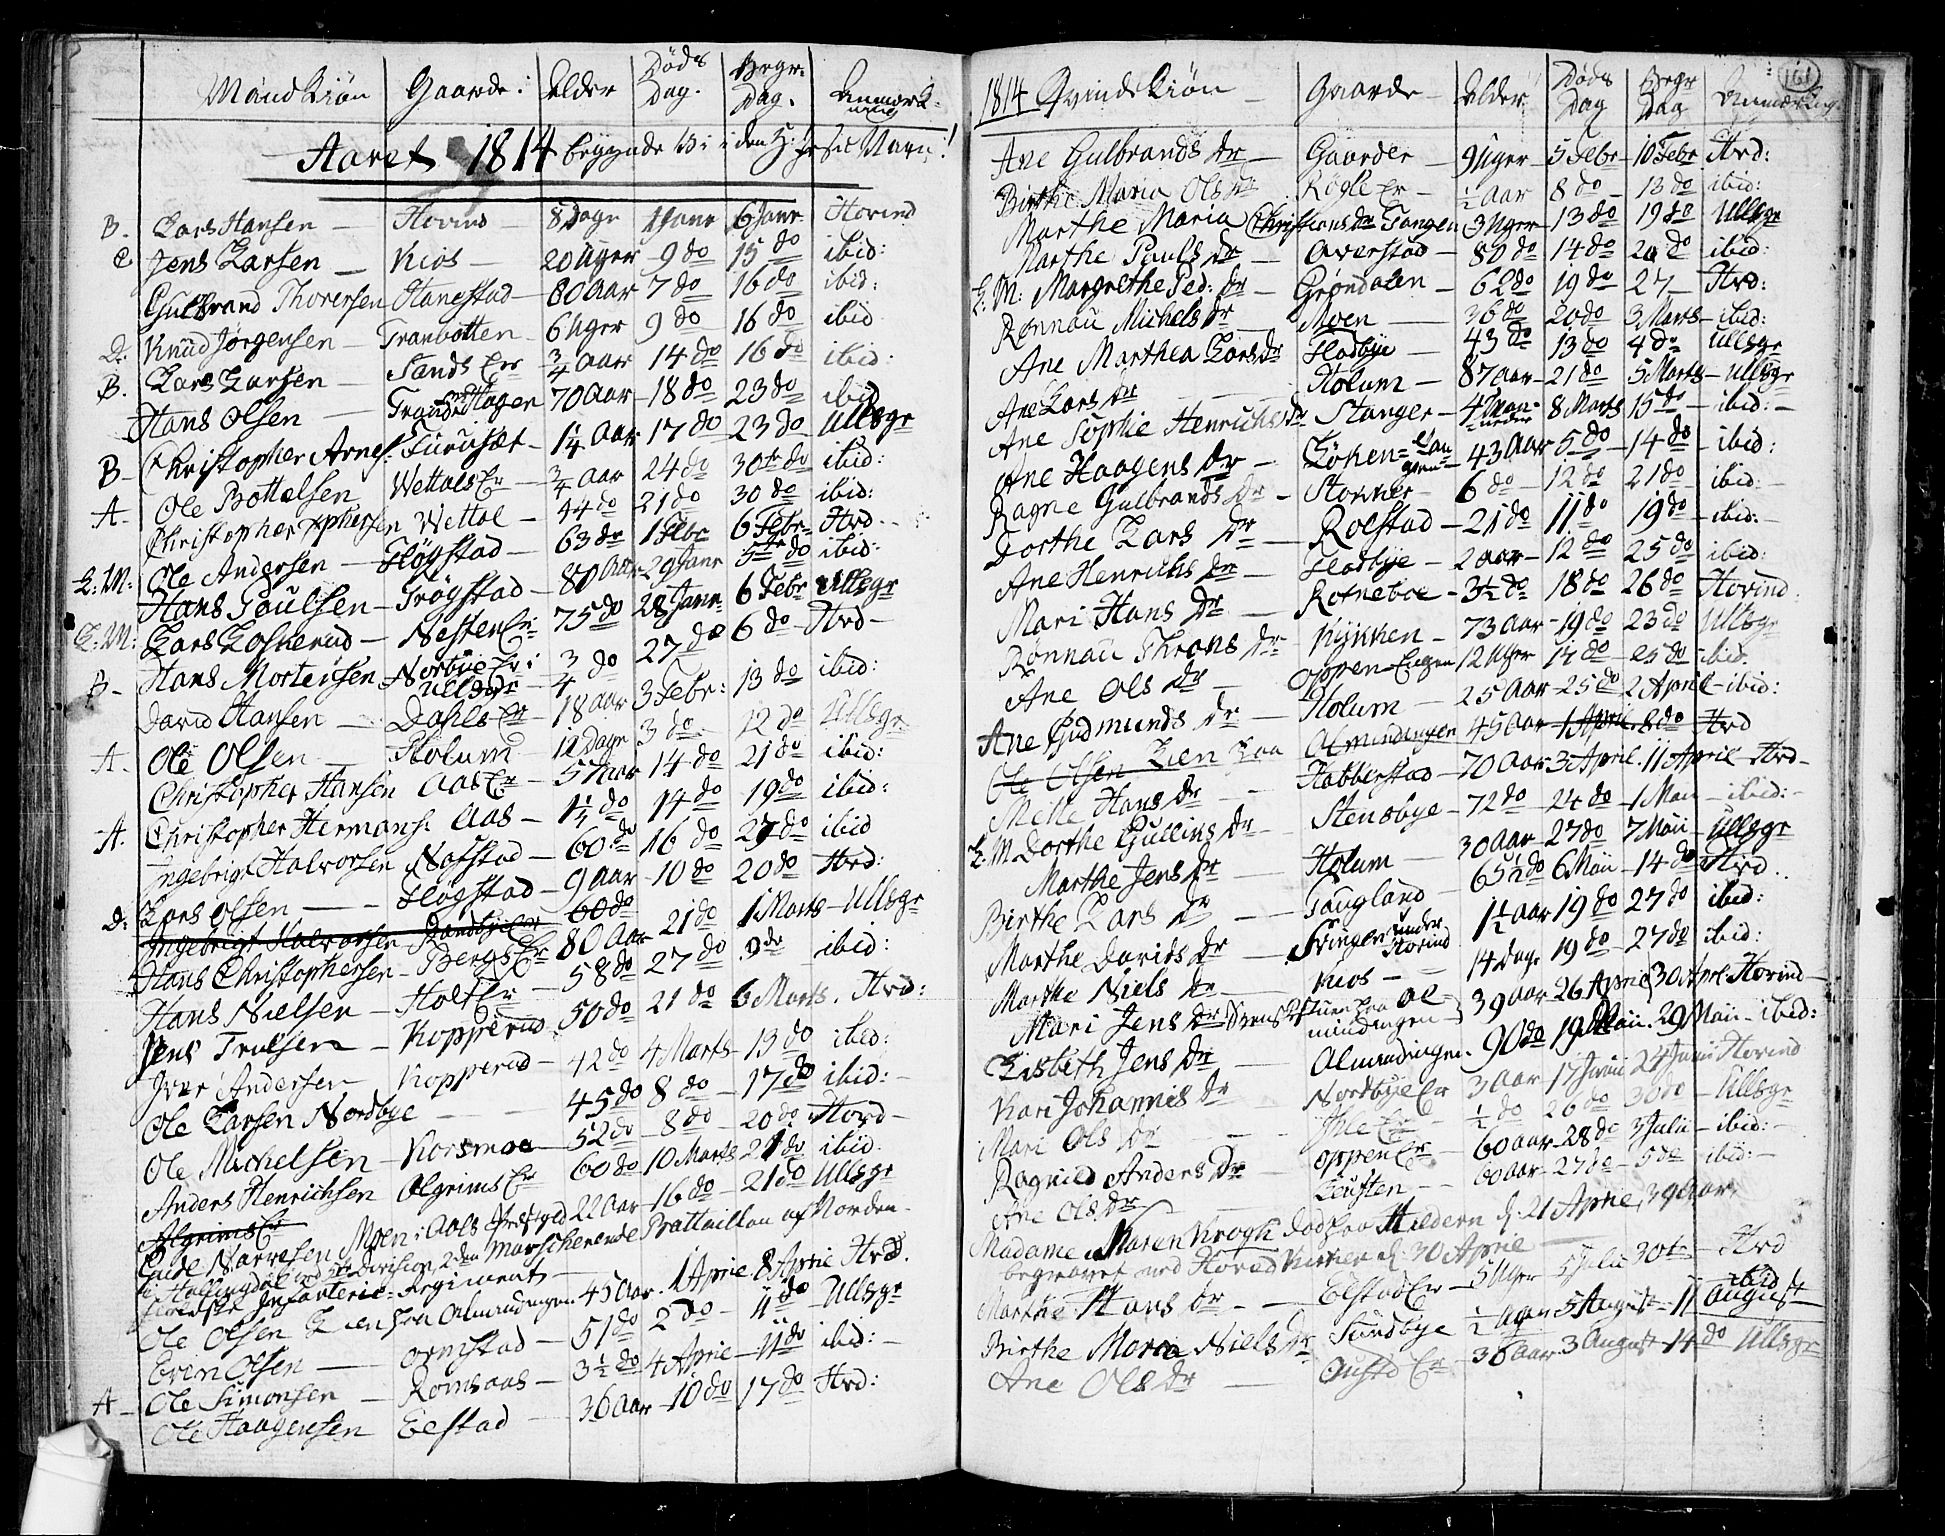 Mand Kiøn Gaarde: Alder Døds Dag. Begr: Dag. Anmærkning
Aaret 1814 begynde Vi i den H: Jesu Navn!
B. Lars Hansen — Hovind — 8 Dage 1 Janr 6 Janr Hovind
C Jens Larsen — Kios — 20 Uger 9 do 15 do ibid:
Gulbrand Thoversen Hangstad — 80 Aar 7 do 16 do ibid:
D. Knud Jørgensen — Tranbotten — 6 Uger 9 do 16 do ibid
B. Lars Larsen — Sands Er 3/4 Aar 14 do 16 do ibid:
Hans Olsen — Hagen 70 Aar — 18 do 23 do ibid
B — Christopher Arnes: Furuset — 1 1/4 Aar 17 do 23 do Ullsgr
A — Ole Bottelsen Wettals Er — 3/4 Aar 24 do 30te do ibid:
Christopher Xphersen Wettal — 44 do 21 do 30 do ibid:
L: M: Ole Andersen — Fløgstad — 63 do 1 Febr 6 Febr — Hvd —
Hans Poulsen — Trøgstad — 80 Aar 29 Janr 5te do ibid:
L: M: Lars Loskerud — Nesten Er: 75 do 28 Janr 6 Febr Ullsgr
B — Hans Mortensen — Norbye Er i Ulldahl 3/4 do 27 do 6 do — Hvd —
David Hansen — Dahls Er — 18 Aar 3 Febr: 13 do ibid:
A — Ole Olsen — Holum 12 Dage 3 do 12 do Ullsgr
Christopher Hansen Aas Er — 57 Aar 14 do 21 do ibid:
A. Christopher Hermans: Aas — 1 1/4 do 14 do 19 do ibid:
Ingebrigt Halvorsen Nafstad — 60 do 16 do 27 do ibid
D: Lars Olsen — Fløgstad — 9 Aar — 10 do 20 do Hvd:
Ingebrigt Halvorsen 60 do
Hans Christophersen — Bergs Er 80 Aar 21 do 1 Marts — Ullsgr
Hans Nielsen — Holt Er — 58 do 27 do 9 do ibid:
Jens Trulsen — Kopperud 50 do 21 do 6 Marts. Hvd:
Iver Andersen Kopperud — 42 do 4 Marts — 13 do ibid:
Ole Larsen Nordbye — 45 do 8 do — 17 do ibid: —
Ole Michelsen — Korsmoe — 52 do — 8 do 20 do Hovd —
Anders Henrichsen Algrims Er — 60 do 10 Marts 21 do ibid:
Algrims Er
Narvesen Moen i Aals Prestgld 22 Aar — 16 do — 21 do Ullsgr
i Hallingdal Division 2den Marscherende Battaillon af Norden-
fieldske Infanterie: Regiment —
Ole Olsen Lien fra Almindingen 45 Aar. 1 Aprie 8 Aprie Hvd.
Even Olsen — Ormstad — 51 do 2 do — 11 do — Ullsgr
A — Ole Simonsen — Romsaas — 3 1/2 do 4 Aprie — 11 do ibid: —
Ole Haagensen Eestad — 36 Aar — 10 do 17 do Hvd:
1814 Qvinde Kiøn — Gaarde — Alder Døds Dag Begr Dag Anmærkng. 161
Ane Gulbrands Dr — Gaarder — 9 Uger — 5 Febr — 10 Febr Hvd:
Birthe Maria Ols Dr Røgle Er — 1/2 Aar 8 do — 13 do ibid:
Marthe Maria Christians Dr Tangen 3 Uger — 13 do 19 do Ullsgr
Marthe Pauls Dr — Averstad — 80 do 14 do 20 do ibid:
L: M: Margrethe Ped: Dr — Grøndalen — 62 do 19 do 27 — Hvd:
Rønnau Michels Dr — Moen — 36 do 20 do 3 Marts — ibid:
Ane Marthea Lars Dr Fladbye — 43 do 13 do 4 do Ullsgr
Ane Lars Dr — Holum — 87 Aar — 21 do 5 Marts — Ullsgr
Ane Sophie Henrichs Dr — Stanger — 4 Maaneder 8 Marts 15 do — ibid: —
Ane Haagens Dr — Løken = 43 Aar 5 do — 14 do — ibid:
Ragne Gulbrands Dr — Stokker — 6 do — 12 do 21 do — ibid: —
Dorthe Lars Dr — Rolstad — 21 do 11 do 19 do — ibid: —
Ane Henrichs Dr — Fladbye — 2 Aar — 12 do 25 do ibid:
Mari Hans Dr — Rotneboe — 3 1/2 do 18 do 26 do Hovind
Rønnau Throns Dr — Kykken — 73 Aar — 19 do 23 do Ullsgr
Ane Ols Dr — Oppen Engen 12 Uger — 14 do — 25 do ibid:
Ane Gudmunds Dr — Holum — 25 Aar — 25 do 2 April — ibid:
Ole Olsen Lien fra Almindingen 45 Aar — 1 April. 8 do — Hvd
Mette Hans Dr — Habberstad — 70 Aar 3 April. 11 April — Hvd —
L. M. Dorthe Gullins Dr — Stensbye — 72 do — 24 do — 1 Maii — ibid: —
Marthe Jens Dr — Holum — 30 Aar — 27 do 7 Maii — Ullsgr
Birthe Lars Dr — Haugland — 65 1/2 do 6 Maii — 14 do — Hvd.
Marthe Davids Dr — under Hovind 1 1/2 Aar 19 do 27 do ibid:
Marthe Niels Dr — Kios — 14 Dage 19 do — 27 do ibid:
Mari Jens Dr fra Almindingen — 39 Aar 26 Aprie 30 Aprl Hovind —
Lisbeth Jens Dr — Almindingen. 90 do 19 Maii. 29 Maii — ibid:
Kari Johannis Dr Nordbye Er 3 Aar 17 Junii 24 Junii Hovind
Mari Ols Dr — Ihle Er — 1/2 do 26 do 30 do — Ullsgr
Ragnild Anders Dr — Oppen Er — 60 Aar — 28 do 3 Julii — ibid: —
Ane Ols Dr Leusten — 60 Aar — 27 do — 5 do ibid: —
Madame Maren Krogh død paa Hildern d: 21 Aprie, 39 Aar,
begravet ved Hovind Kirke d: 30 Aprie —
Marthe Hans Dr — Eelstad Er — 5 Uger — 5 Julii 30te — Hvd
Birthe Maria Niels Dr Sundbye 1/2 Aar 5 August — 11 August ibid
Ane Ols Dr — Er — 36 Aar — 3 August — 14 do Ullsgr